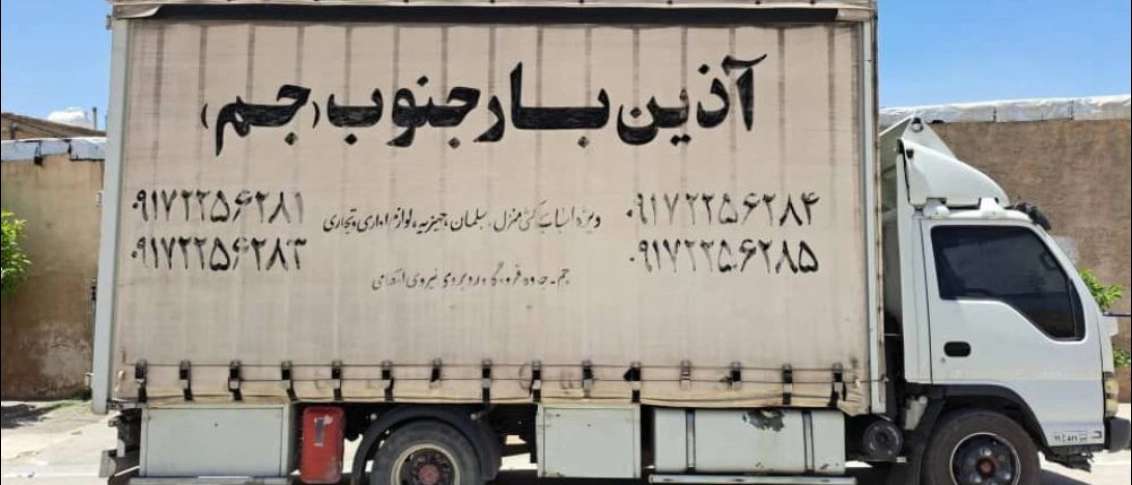 آذین بار جنوب (جم)
۰۹۱۷۲۲۵۶۲۸۴
ویژه اسباب کشی منزل، مبلمان، جهیزیه، لوازم اداری و تجاری
۰۹۱۷۲۲۵۶۲۸۱
۰۹۱۷۲۲۵۶۲۸۵
۰۹۱۷۲۲۵۶۲۸۳
جم - جاده فرودگاه روبروی نیروی انتظامی